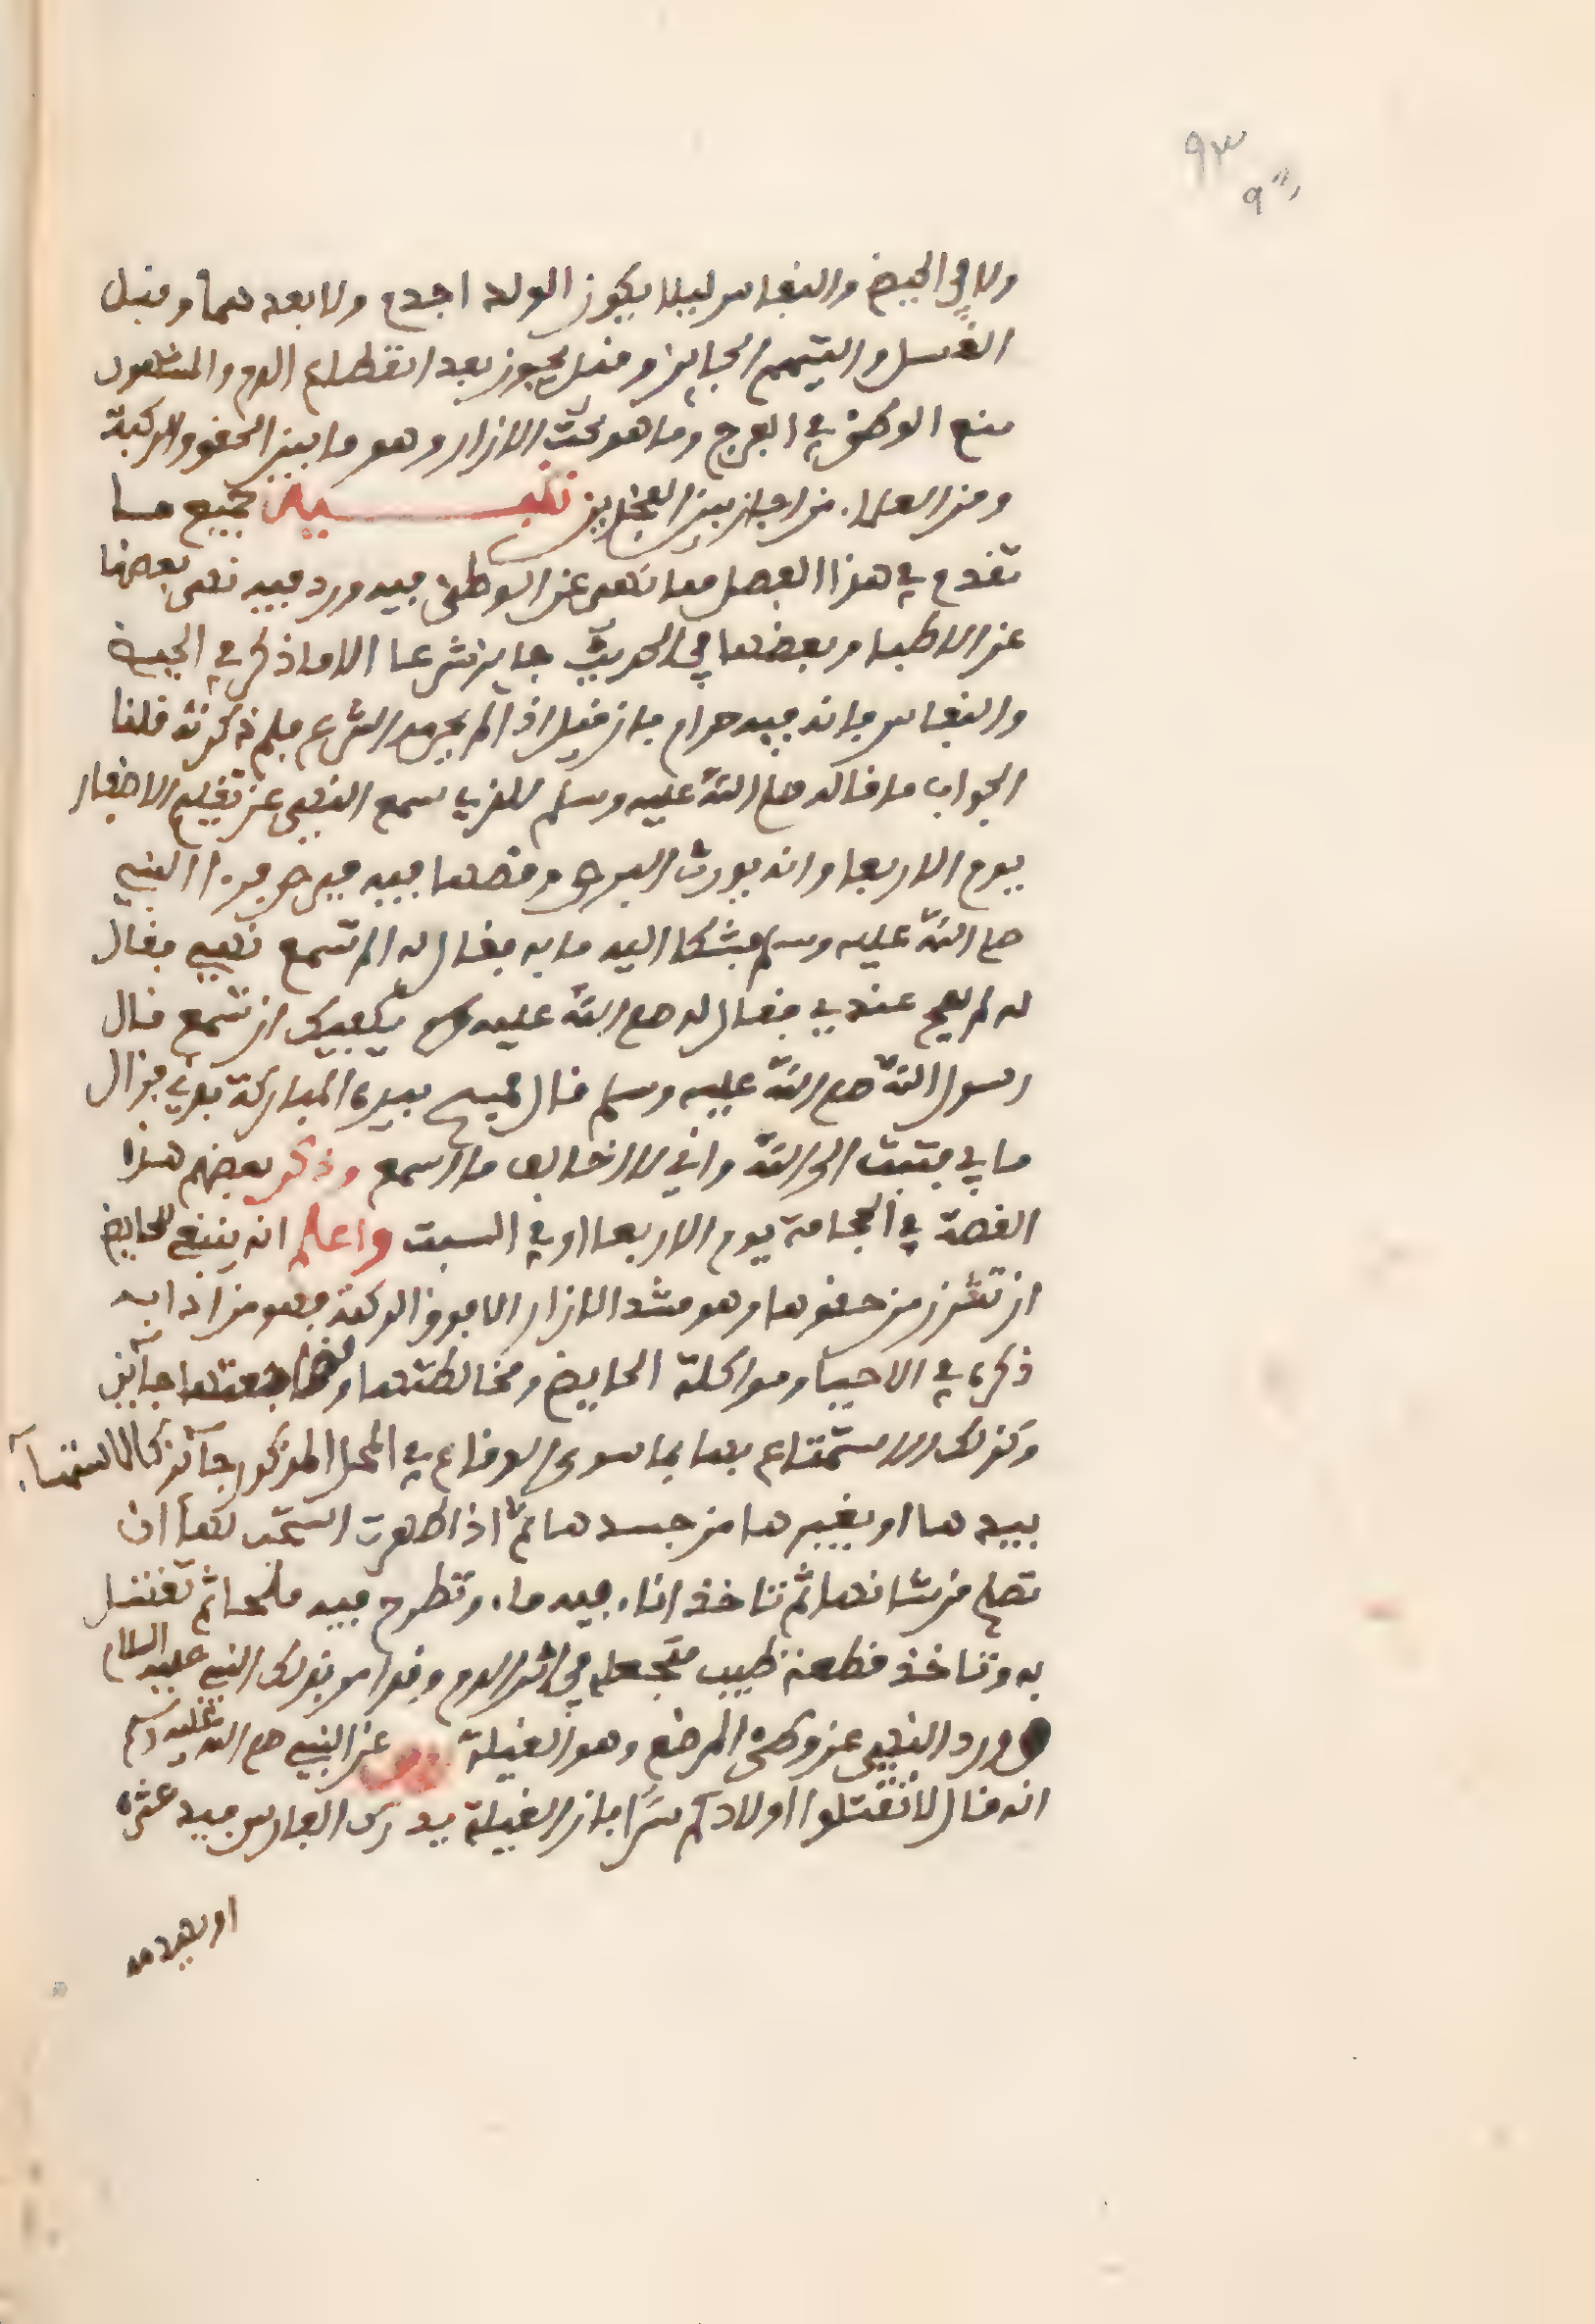 ٩٣
٩
ولا في الحيض والنفاس ليلا يكون الولد اجدم ولا بعدهما وقبل
الغسل والتيمم الجايز وقيل يجوز بعد انقطاع الدم والمشهور
منع الوطئ في الفرج وما هو تحت الازار وهو ما بين الحقو والركبة
ومن العلماء من اجاز بين الفخذين تنبيه جميع ما
تقدم في هذا الفصل مما نهى عن الوطئ فيه وورد فيه نهى بعضها
عن الاطبا وبعضها في الحديث جايز شرعا الا ما ذكر في الحيض
والنفاس فانه فيه حرام فان قيل اذا لم يحرمه الشرع فلم ذكرته قلنا
الجواب ما قاله صلى الله عليه وسلم للذي سمع النهى عن تقليم الاضفار
يوم الاربعا وانه يورث البرص وقصها فيه فبرص فرءا النبي
صلى الله عليه وسلم فشكا اليه ما به فقال له الم تسمع نهيي فقال
له لم يصح عندي فقال له صلى الله عليه وسلم يكفيك ان تسمع قال
رسول الله صلى الله عليه وسلم قال فمسح بيده المباركة بدني فزال
ما بي فتبت الى الله واني لا اخالف ما اسمع وذكر بعضهم هذه
القصة في الحجامة يوم الاربعا او في السبت واعلم انه ينبغي للحايض
ان تتزر من حقوها وهو مشد الازار الا فوق الركبة فهو من اذابه
ذكره في الاحيا ومواكلة الحايض ومخالطتها ومضاجعتها جايز
وكذلك الاستمتاع بها بما سوى الوقاع في المحل المذكور جآئز كالاستمنآء
بيدها او بغيرها من جسدها ثم اذا طهرت استحب لها ان
تصلح من شانها ثم تاخذ اناء فيه ماء وتطرح فيه ملحا ثم تغتسل
به وتاخذ قطعة طيب فتجعله في اثر الدم وقد امر بذلك النبي عليه السلام
وورد النهى عن وطئ المرضع وهو الغيلة عن النبي صلى الله عليه وسلم
انه قال لا تقتلوا اولادكم سرا فان الغيلة يدرك الفارس فيدعثره
او يهدمه